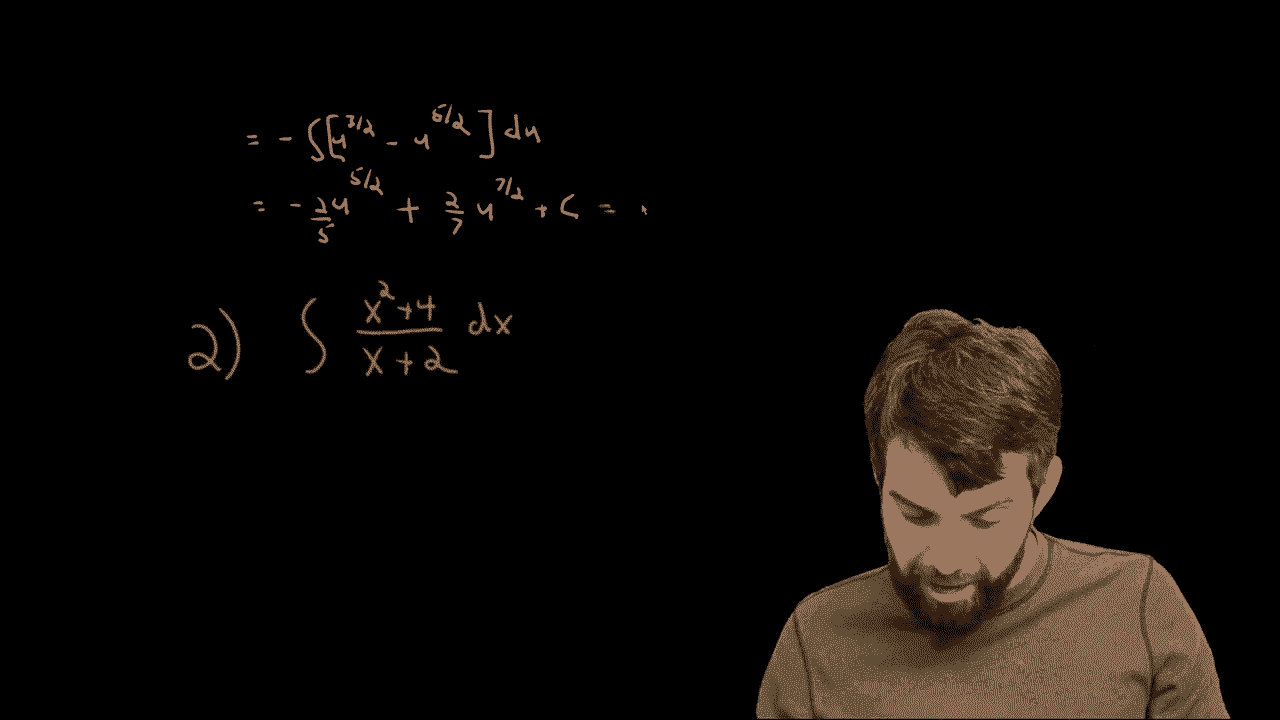 = - ∫[u^3/2 - u^5/2] du
= - 2/5 u^5/2 + 2/7 u^7/2 + C =
2) ∫ x^2+4 / x+2 dx